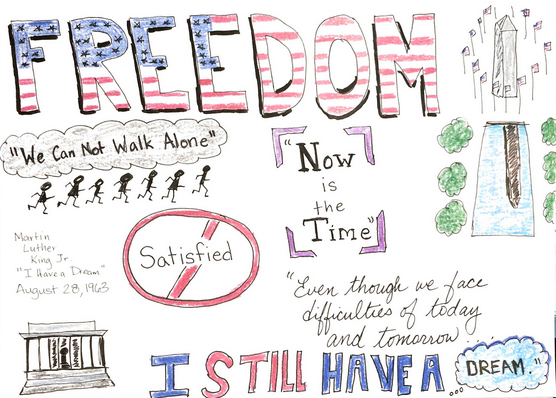 FREEDOM
"We Can Not Walk Alone"
"Now
is
the
Time"
Martin
Luther
King Jr.
"I Have a Dream"
August 28, 1963
Satisfied
"Even though we face
difficulties of today
and tomorrow
I STILL HAVE A... DREAM."